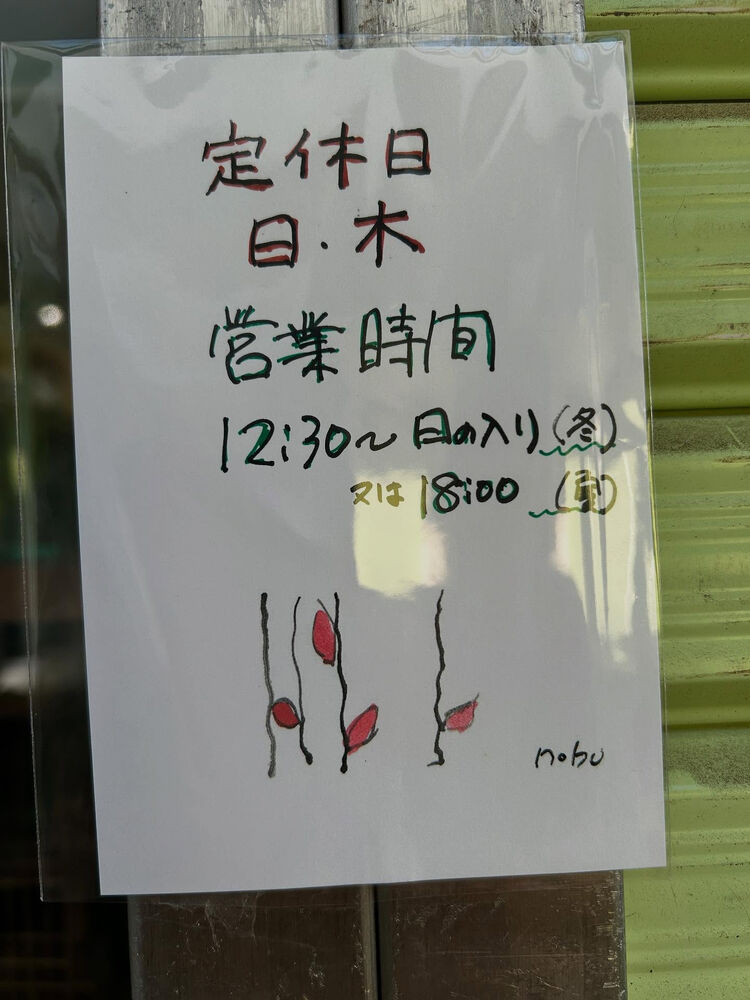 定休日
日・木
営業時間
12:30〜日の入り(冬)
又は18:00 (夏)
nobu